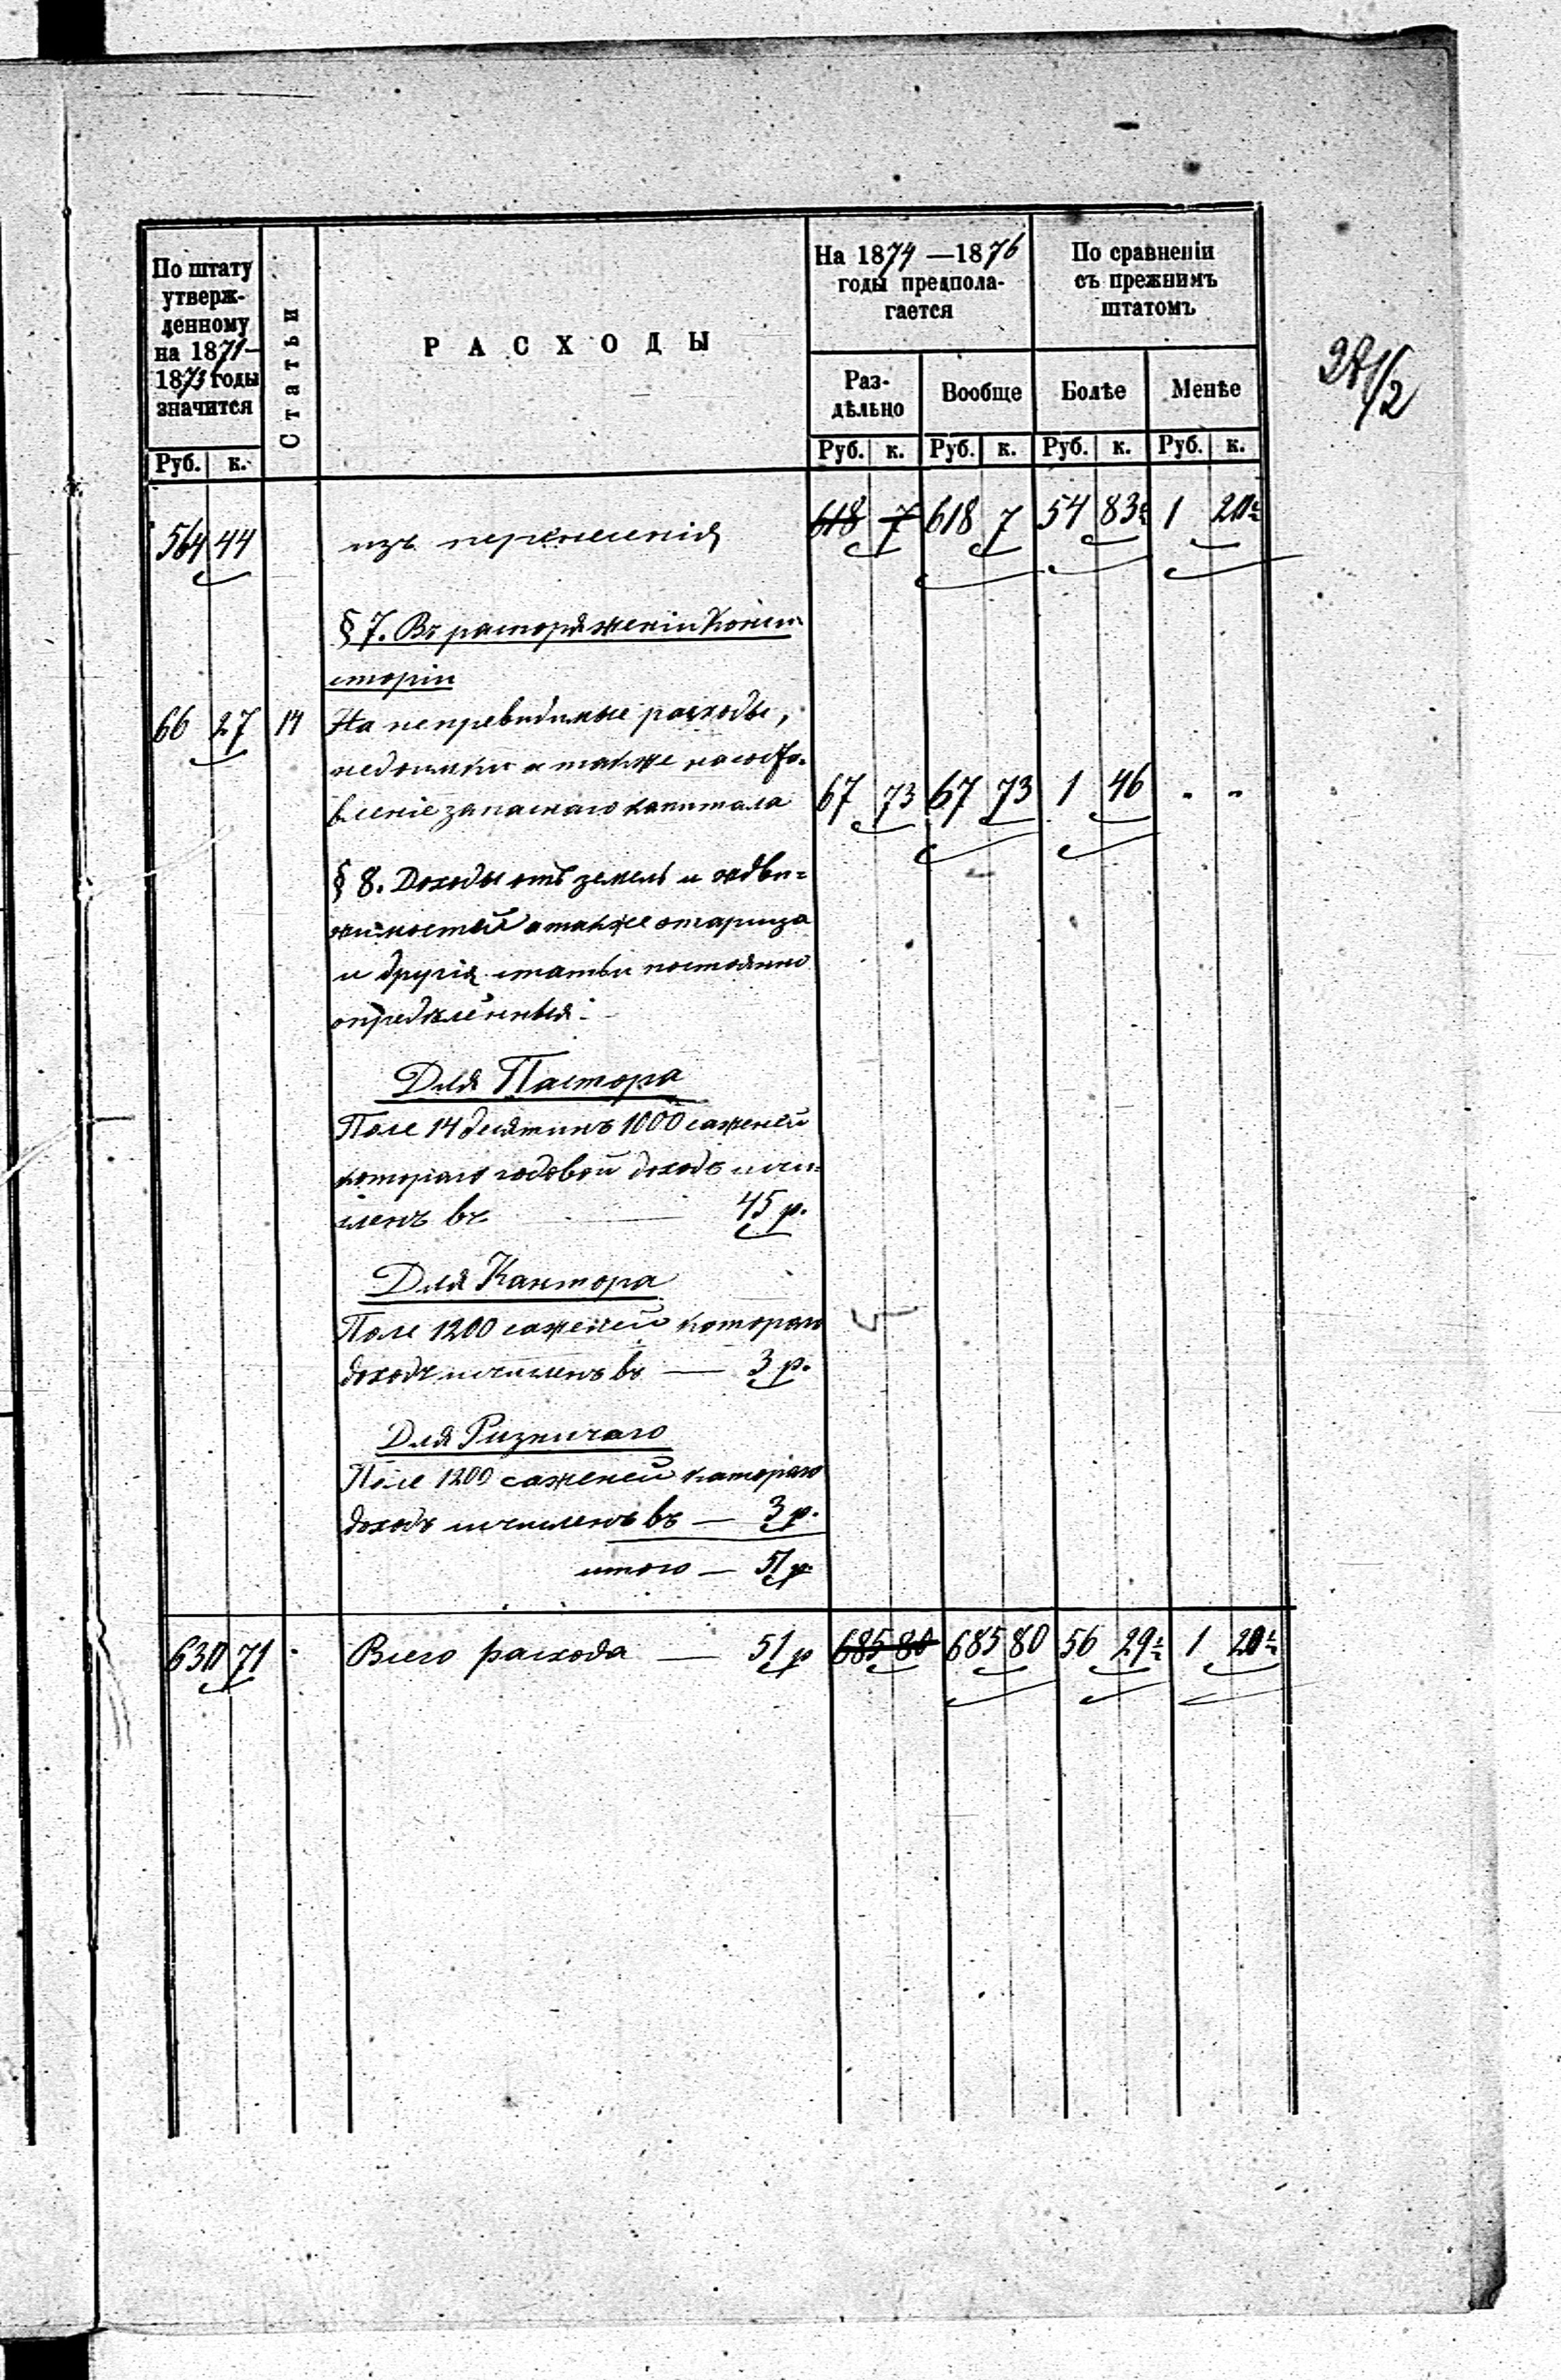 По штату утверж- денному на 1871- 1873 годы значится
Статьи
РАСХОДЫ
На 1874 —1876 годы предпола- гается
По сравненіи съ прежнимъ штатомъ
Раз- дѣльно
Вообще
Болѣе
Менѣе
Руб. к.
Руб. к. Руб. к. Руб. к. Руб. к.
564 44 изъ перенесенія 618 7 618 7 54 83½ 1 20½
§ 7. Въ распоряженіи Конси-
сторіи
66 27 14 На непревидимые расходы,
недоимки а также на соста-
вленіе запаснаго капитала 67 73 67 73 1 46 " "
§ 8. Доходы отъ земель и недви=
жимостей а также
и другія статьи постоянно
опредѣленныя:
Для Пастора
Поле 14 десятинъ 1000 саженей
котораго годовой доходъ исчи=
сленъ въ — 45 р.
Для Кантора
Поле 1200 саженей котораго
доходъ исчисленъ въ — 3 р.
Для Ризничаго
Поле 1200 саженей котораго
доходъ исчисленъ въ — 3 р.
итого — 51 р.
630 71 Всего расхода — 51 р 685 80 685 80 56 29½ 1 20½